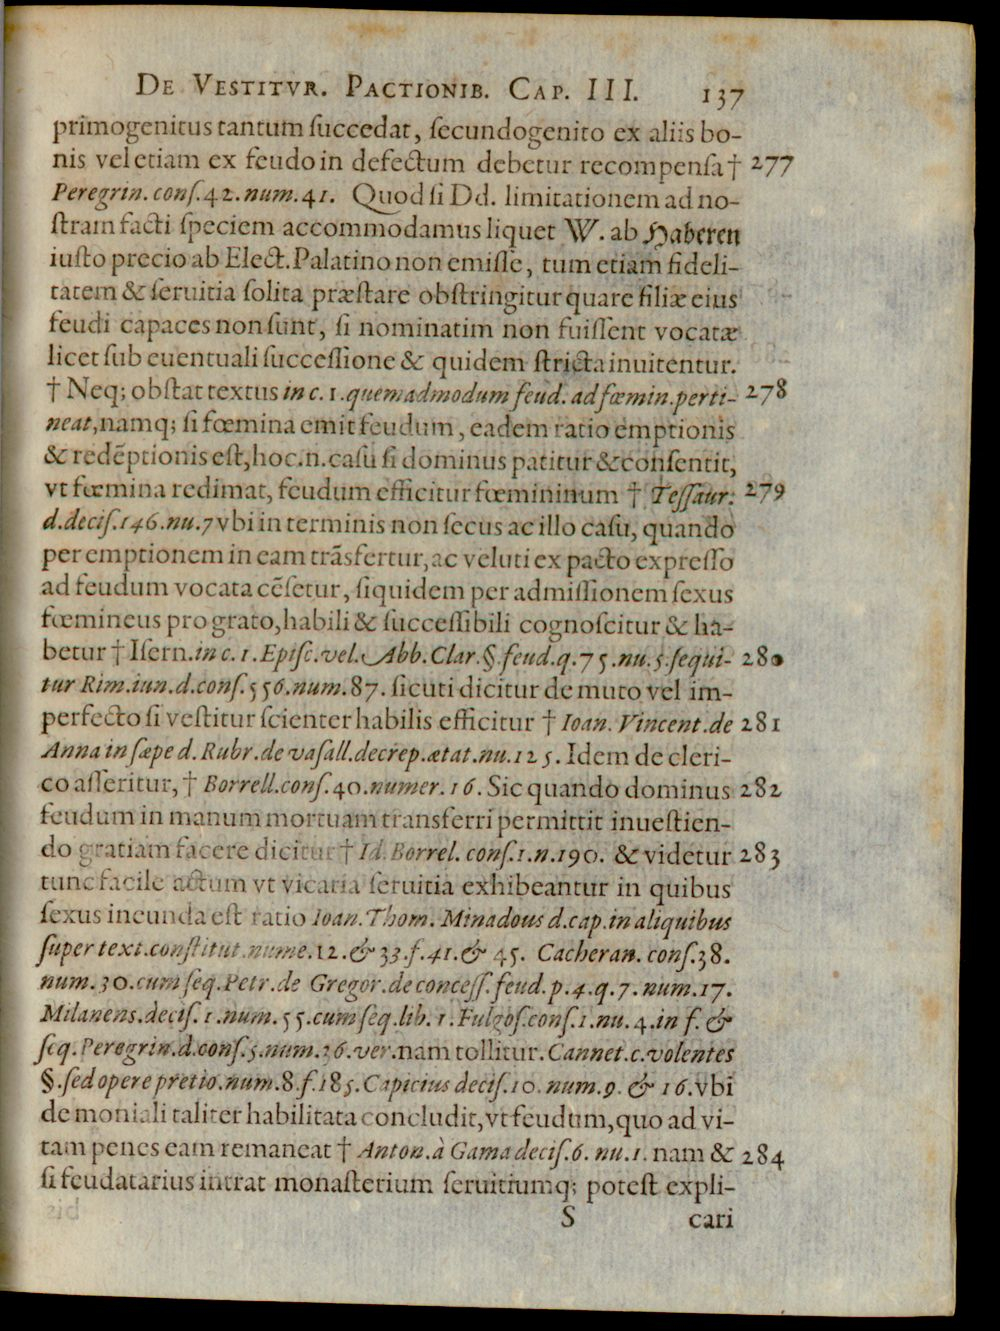 De Vestitvr. Pactionib. Cap. III. 137
primogenitus tantum succedat, secundogenito ex aliis bo-
nis vel etiam ex feudo in defectum debetur recompensa † 277
Peregrin. cons. 42. num. 41. Quod si Dd. limitationem ad no-
stram facti speciem accommodamus liquet W. ab Haberen
iusto precio ab Elect. Palatino non emisse, tum etiam fideli-
tatem & seruitia solita præstare obstringitur quare filiæ eius
feudi capaces non sunt, si nominatim non fuissent vocatæ
licet sub euentuali successione & quidem stricta inuitentur.
† Neq; obstat textus in c. 1. quemadmodum feud. ad fœmin. perti- 278
neat, namq; si fœmina emit feudum, eadem ratio emptionis
& redẽptionis est, hoc. n. casu si dominus patitur & consentit,
vt fœmina redimat, feudum efficitur fœmininum † Tessaur. 279
d. decis. 146. nu. 7 vbi in terminis non secus ac illo casu, quando
per emptionem in eam trãsfertur, ac veluti ex pacto expresso
ad feudum vocata cẽsetur, siquidem per admissionem sexus
fœmineus pro grato, habili & successibili cognoscitur & ha-
betur † Isern. in c. 1. Episc. vel. Abb. Clar. §. feud. q. 75. nu. 5. sequi- 280
tur Rim. iun. d. cons. 556. num. 87. sicuti dicitur de muto vel im-
perfecto si vestitur scienter habilis efficitur † Ioan. Vincent. de 281
Anna in sæpe d. Rubr. de vasall. decrep. ætat. nu. 125. Idem de cleri-
co asseritur, † Borrell. cons. 40. numer. 16. Sic quando dominus 282
feudum in manum mortuam transferri permittit inuestien-
do gratiam facere dicitur † Id. Borrel. cons. 1. n. 190. & videtur 283
tunc facile actum vt vicaria seruitia exhibeantur in quibus
sexus ineunda est ratio Ioan. Thom. Minadous d. cap. in aliquibus
super text. constitut. nume. 12. & 33. f. 41. & 45. Cacheran. cons. 38.
num. 30. cum seq. Petr. de Gregor. de concess. feud. p. 4. q. 7. num. 17.
Milanens. decis. 1. num. 55. cum seq. lib. 1. Fulgos. cons. 1. nu. 4. in f. &
seq. Peregrin. d. cons. 5. num. 26. ver. nam tollitur. Cannet. c. volentes
§. sed opere pretio. num. 8. f. 185. Capicius decis. 10. num. 9. & 16. vbi
de moniali taliter habilitata concludit, vt feudum, quo ad vi-
tam penes eam remaneat † Anton. à Gama decis. 6. nu. 1. nam & 284
si feudatarius intrat monasterium seruitiumq; potest expli-
S cari